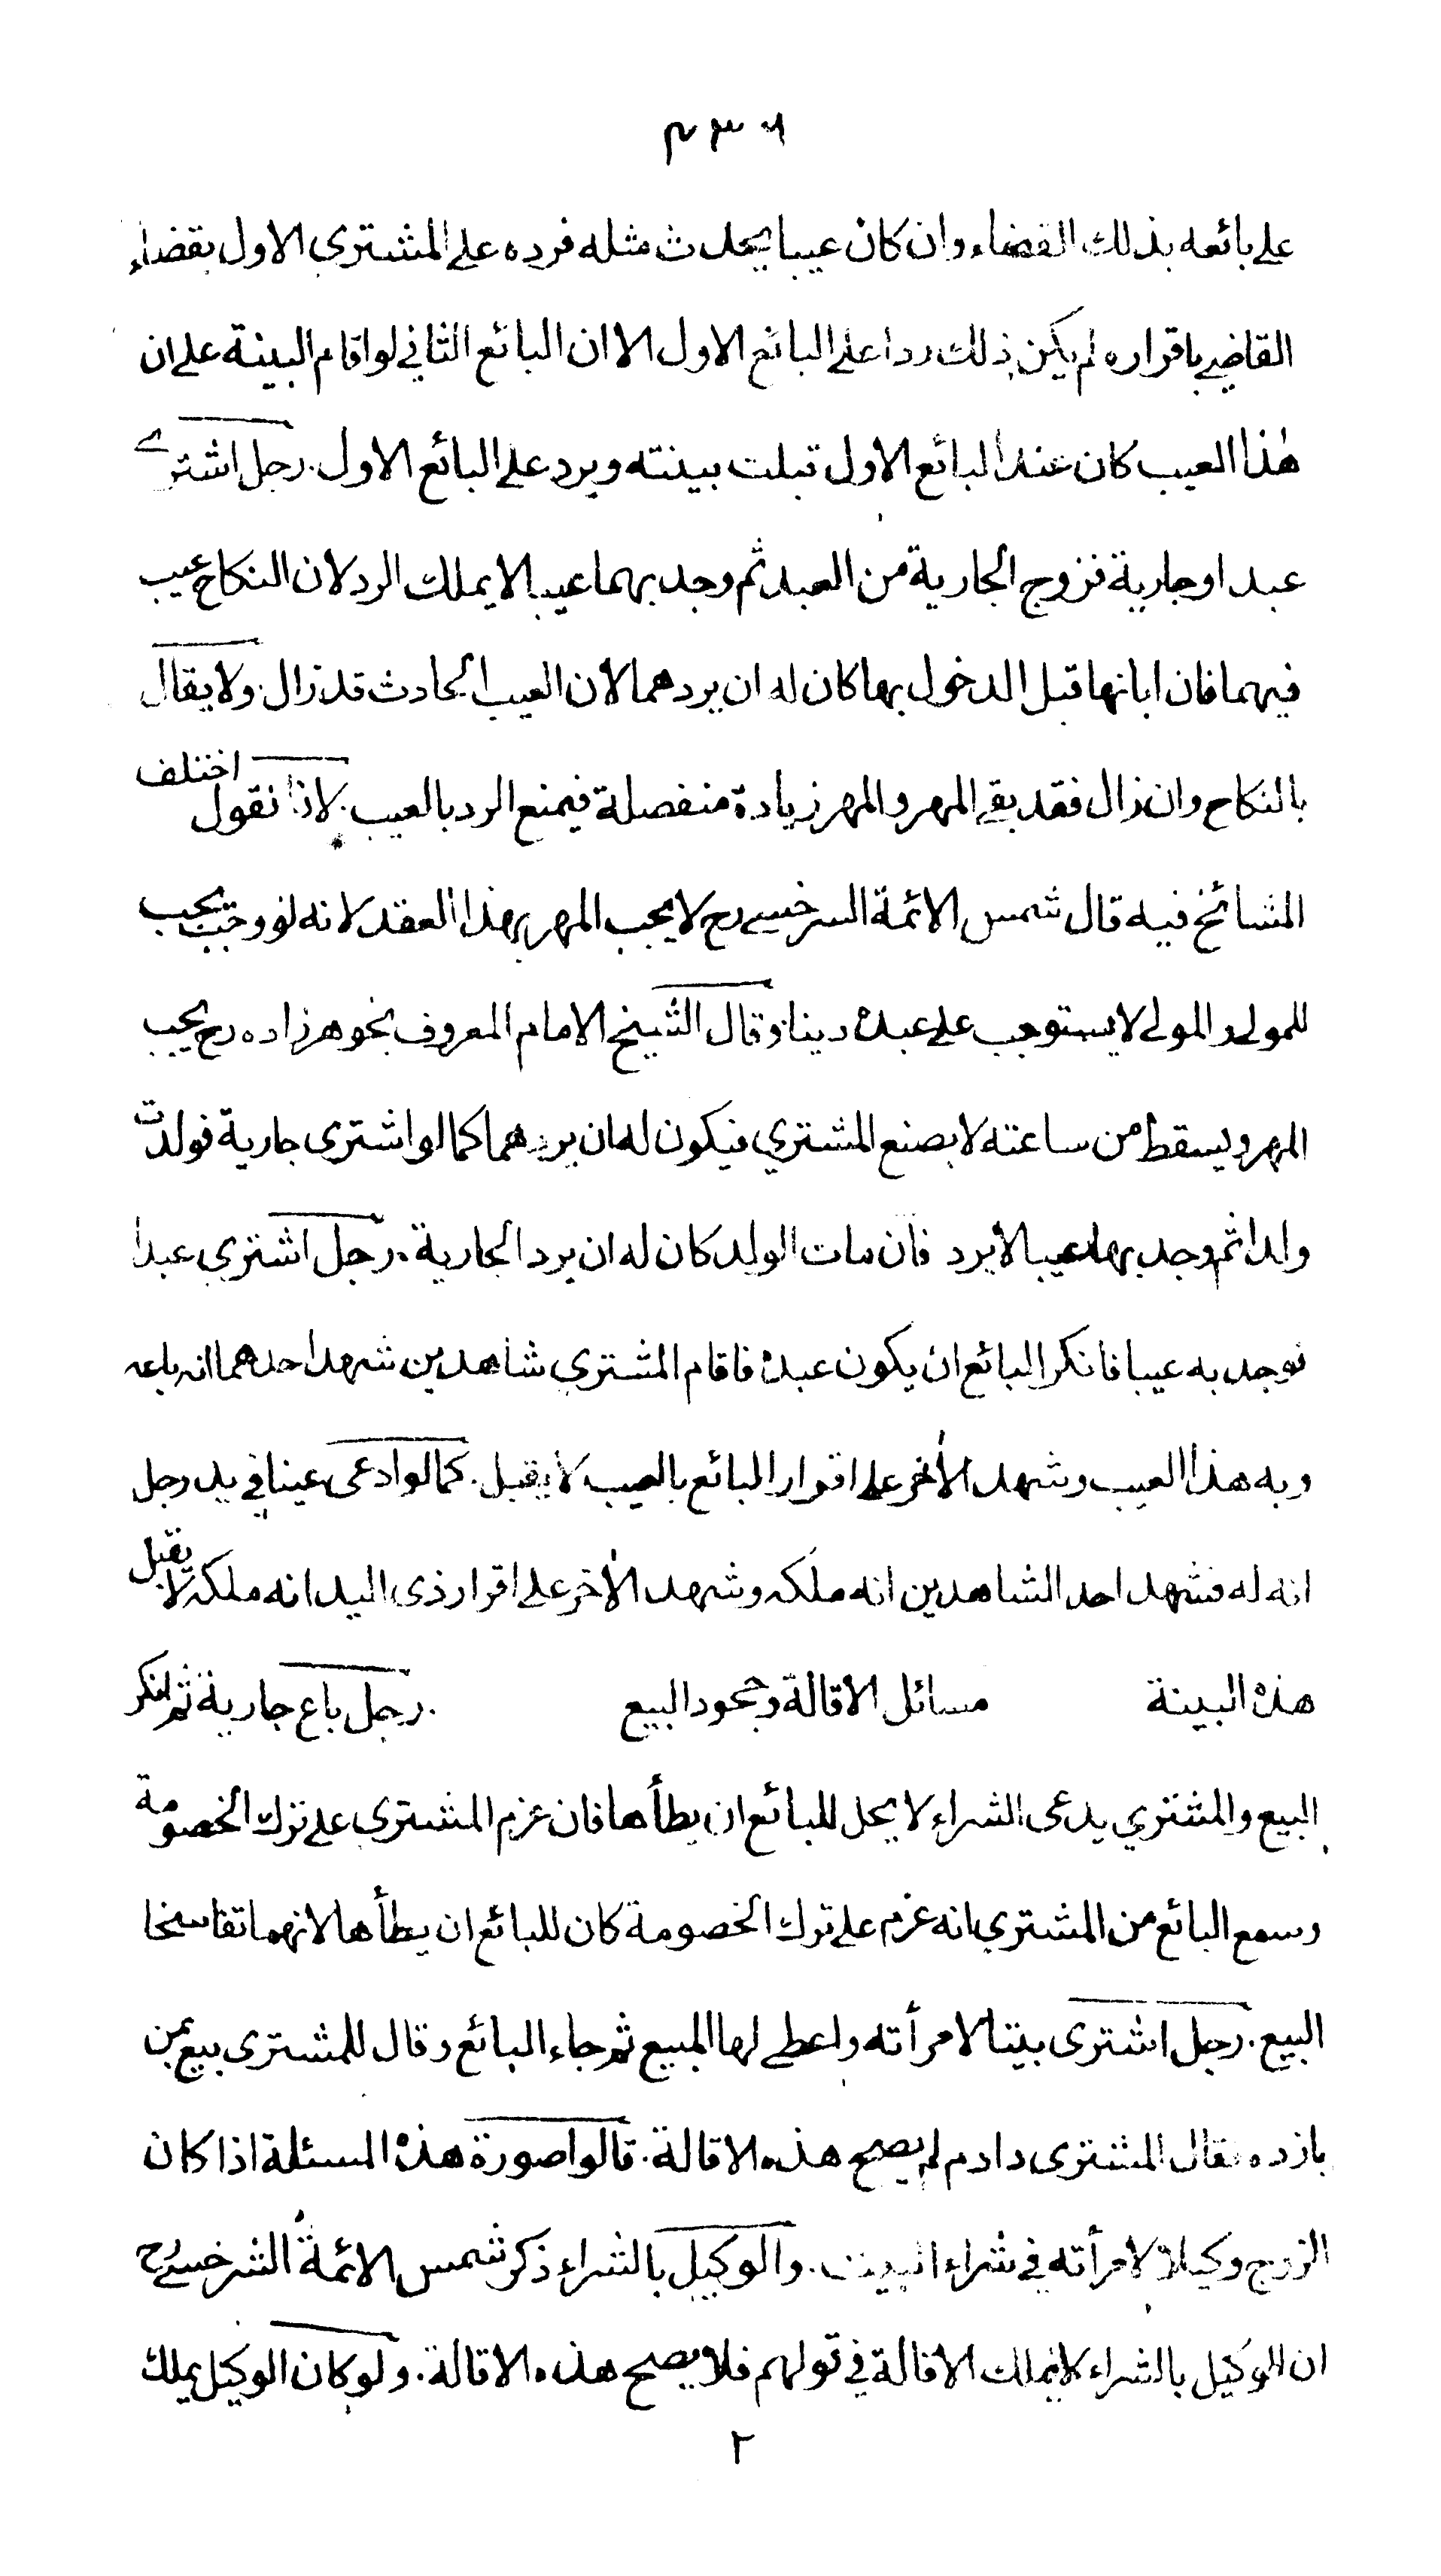 على بائعه بذلك القضاء وان كان عيبا يحدث مثله فرده على المشترى الاول بقضاء
القاضي باقراره لم يكن ذلك ردا على البائع الاول الا ان البائع الثاني لو اقام البينة على ان
هذا العيب كان عند البائع الاول قبلت بينته ويرد على البائع الاول . رجل اشترے
عبدا وجارية فزوج الجارية من العبد ثم وجد بهما عيبا لا يملك الرد لان النكاح عيب
فيهما فان ابانها قبل الدخول بها كان له ان يردهما لان العيب الحادث قد زال . ولا يقال
بالنكاح وان زال فقد بقي المهر والمهر زيادة منفصلة فيمنع الرد بالعيب . لانا نقول اختلف
المشائخ فيه قال شمس الائمة السرخسي رح لا يجب المهر بهذا العقد لانه لو وجب يجب
للمولى والمولى لا يستوجب على عبده دينا . وقال الشيخ الامام المعروف بخواهرزاده رح يجب
المهر ويسقط من ساعته لا بصنع المشتري فيكون له ان يردهما كما لو اشترى جارية فولدت
ولدا ثم وجد بها عيبا لا يرد فان مات الولد كان له ان يرد الجارية . رجل اشتري عبدا
فوجد به عيبا فانكر البائع ان يكون عبده فاقام المشتري شاهدين شهد احدهما انه باعه
وبه هذا العيب وشهد الأخر على اقرار البائع بالعيب لا يقبل . كما لو ادعى عينا في يد رجل
انه له فشهد احد الشاهدين انه ملكه وشهد الأخر على اقرار ذى اليد انه ملكه لا يقبل
هذه البينة مسائل الاقالة وجحود البيع . رجل باع جارية ثم انكر
البيع والمشتري يدعى الشراء لا يحل للبائع ان يطأها فان عزم المشترى على ترك الخصومة
وسمع البائع من المشتري انه عزم على ترك الخصومة كان للبائع ان يطأها لانهما تفاسخا
البيع . رجل اشترى بيتا لامرأته واعطى لها المبيع ثم جاء البائع وقال للمشترى بيع بمن
بازده فقال المشترى دادم لم يصح هذه الاقالة . قالوا صورة هذه المسئلة اذا كان
الزوج وكيلا لامرأته في شراء البيت . والوكيل بالشراء ذكر شمس الائمة السرخسي رح
ان الوكيل بالشراء لا يملك الاقالة في قولهم فلا يصح هذه الاقالة . ولو كان الوكيل يملك
٢